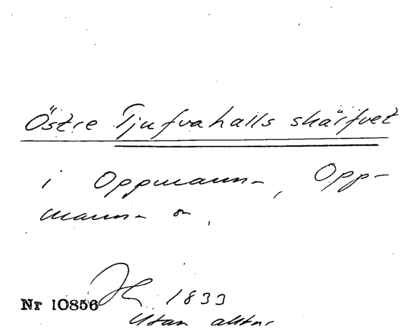 Östre Tjufvahalls skärfvet
i Oppmanna, Opp-
manna
Nr 10856 1833
Utan